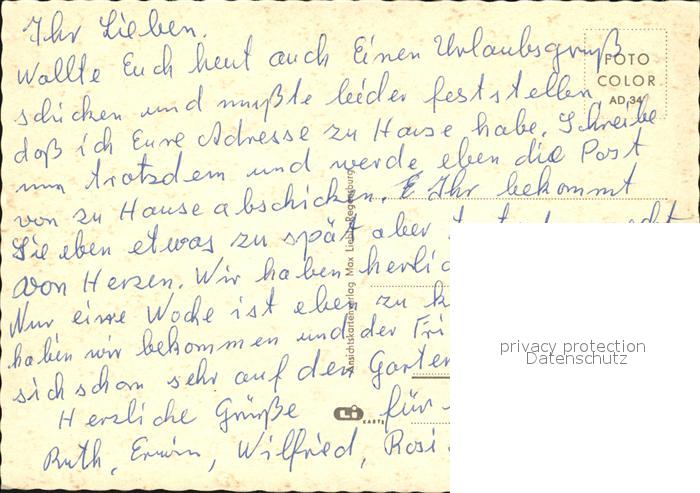 Ihr Lieben.
Wollte Euch heut auch Einen Urlaubsgruß
schicken und mußte leider feststellen
daß ich Eure Adresse zu Hause habe. Schreibe
nun trotzdem und werde eben die Post
von zu Hause abschicken. Ihr bekommt
Sie eben etwas zu spät aber
von Herzen. Wir haben
Nur eine Woche ist eben zu
haben wir bekommen und der
sich schon sehr auf den Garten
Herzliche Grüße für
Ruth, Erwin, Wilfried, Rosi
FOTO
COLOR
AD, 34
Ansichtskartenverlag Max Liebl, Regensburg
Li KARTE
privacy protection
Datenschutz